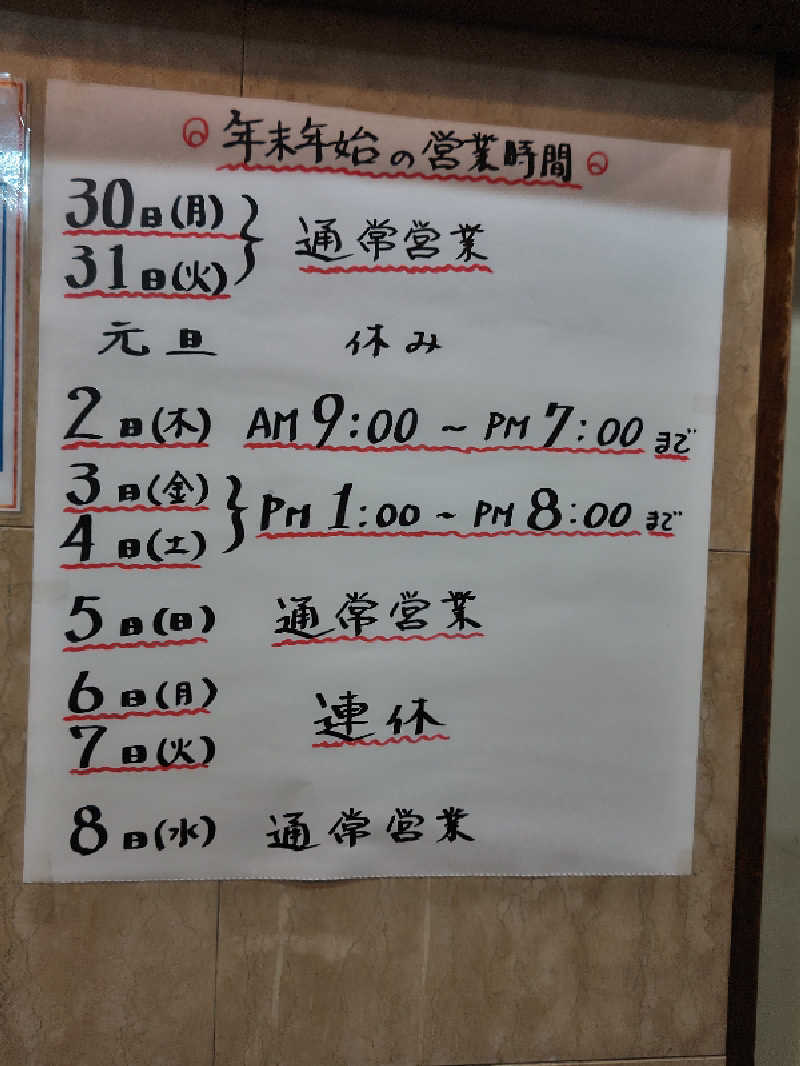 年末年始の営業時間
30日(月)
31日(火) 通常営業
元旦 休み
2日(木) AM 9:00 ~ PM 7:00 まで
3日(金)
4日(土) PM 1:00 ~ PM 8:00 まで
5日(日) 通常営業
6日(月)
7日(火) 連休
8日(水) 通常営業